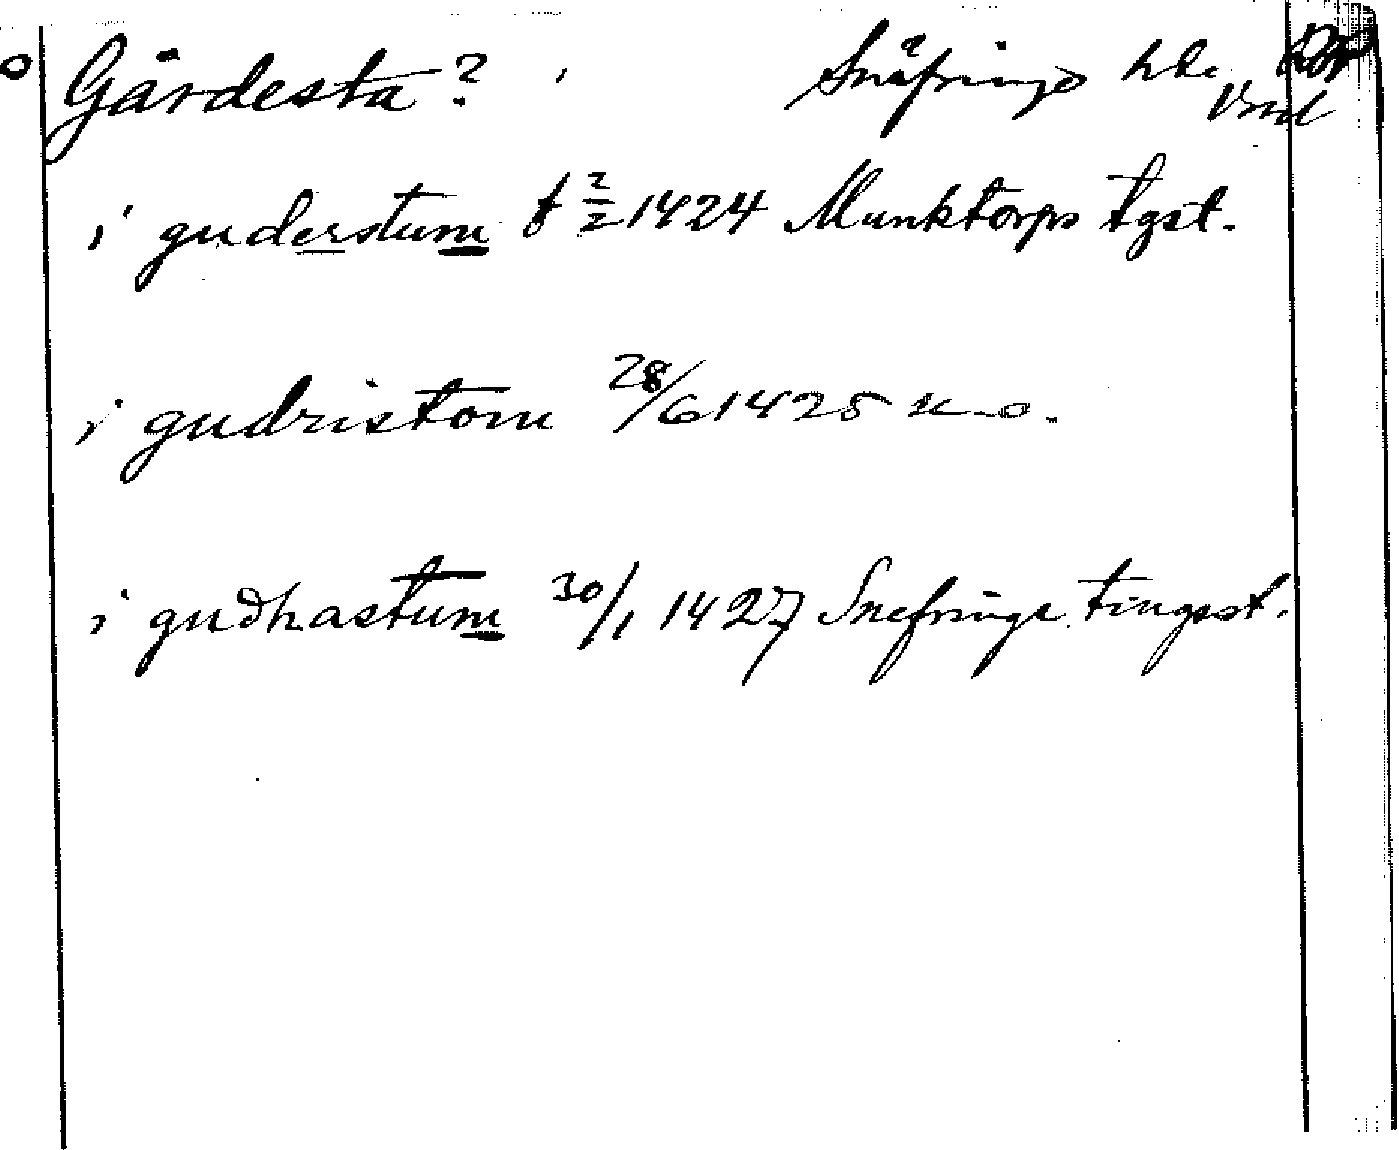 Gårdesta? Snäfringe hde
Vml
i guderstum f 2/2 1424 Munktorps tgst.
i gudristom 28/6 1425 u. o.
i gudhastum 30/1 1427 Snefringe tingst.